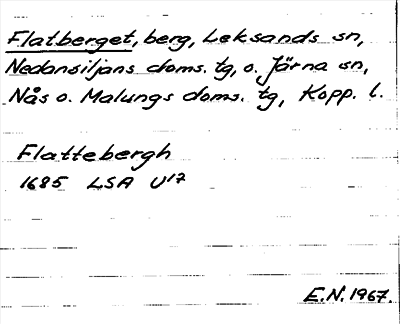 Flatberget, berg, Leksands sn,
Nedansiljans doms. tg, o. Järna sn,
Nås o. Malungs doms. tg, Kopp. l.
Flattebergh
1685 LSA U17
E.N. 1967.